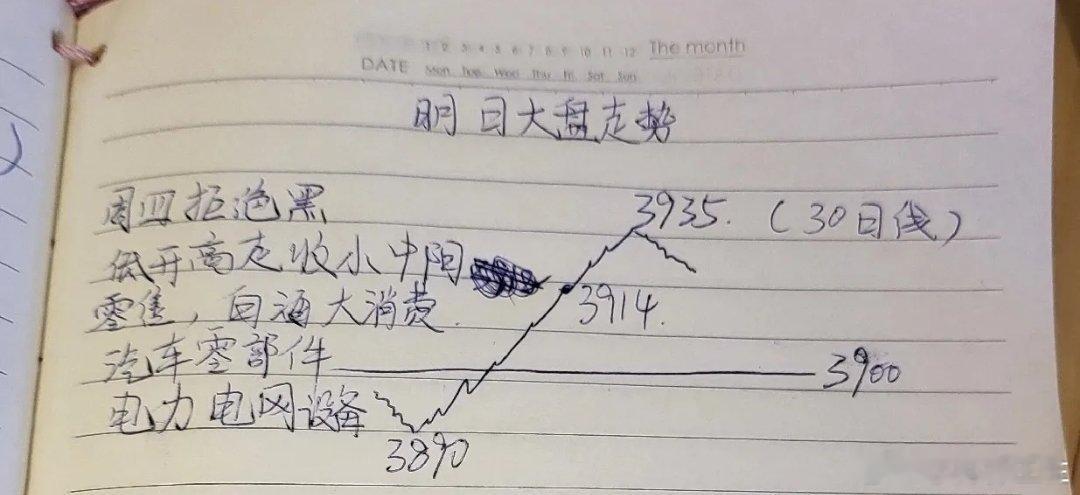 1 2 3 4 5 6 7 8 9 10 11 12 The month
DATE Mon Tue Wed Thu Fri Sat Sun
明日大盘走势
周四拒绝黑
低开高走收小中阳
零售,白酒大消费.
汽车零部件
电力电网设备
3935. (30日线)
3914.
3900
3890